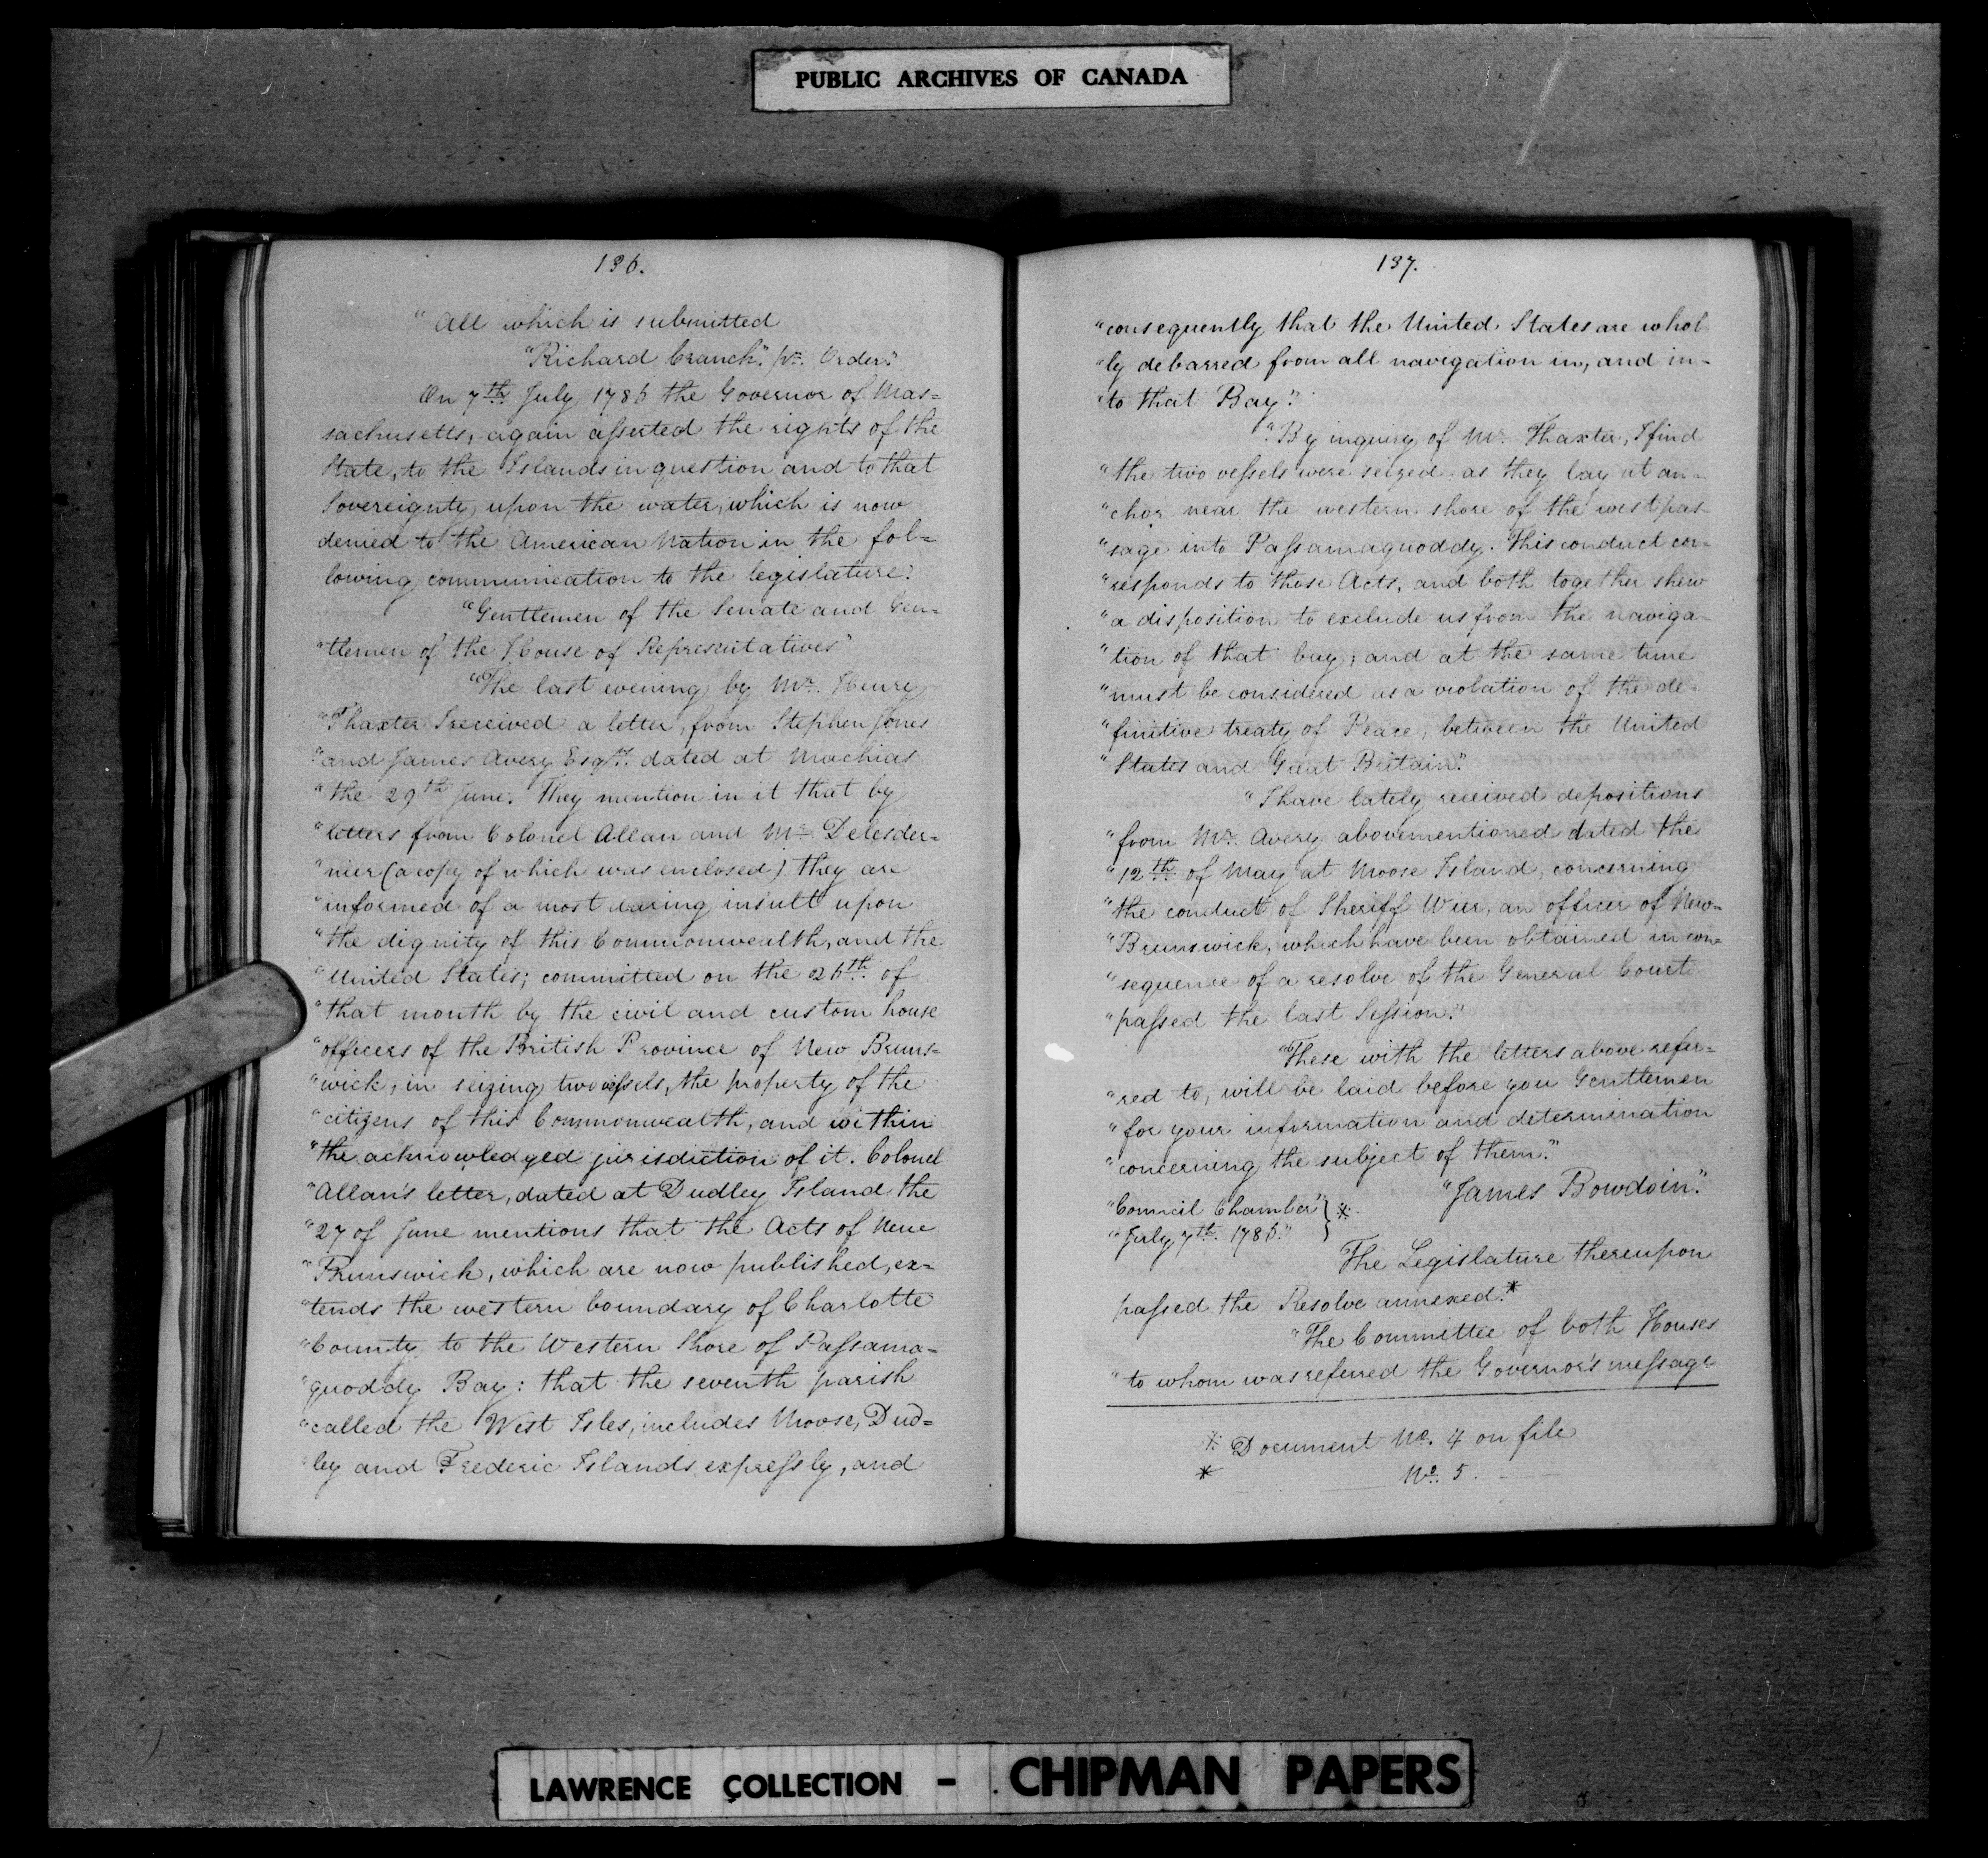 PUBLIC ARCHIVES OF CANADA
136.
"All which is submitted
"Richard Cranch". pr. Order."
On 7th July 1786 the Governor of Mas=
sachusetts, again asserted the rights of the
State, to the Islands in question and to that
Sovereignty upon the water, which is now
denied to the American Nation in the fol=
lowing communication to the legislature.
"Gentlemen of the Senate and Gen=
"tlemen of the House of Representatives"
"The last evening by Mr. Henry
"Thaxter I received a letter, from Stephen Jones
"and James Avery Esqrs. dated at Machias
"the 29th June. They mention in it that by
"letters from Colonel Allan and Mr. Delesder=
"nier (a copy of which was enclosed) they are
"informed of a most daring insult upon
"the dignity of this Commonwealth, and the
"United States; committed on the 26th. of
"that month by the civil and custom house
"officers of the British Province of New Bruns=
"wick, in seizing two vessels, the property of the
"citizens of this Commonwealth, and within
"the acknowledged jurisdiction of it. Colonel
"Allan's letter, dated at Dudley Island the
"27 of June mentions that the Acts of New
"Brunswick, which are now published, ex=
"tends the western boundary of Charlotte
"County to the Western Shore of Passama=
"quoddy Bay: that the seventh parish
"called the West Isles, includes Moose, Dud=
"ley and Frederic Islands expressly, and
137.
"consequently that the United States are whol=
"ly debarred from all navigation in, and in=
"to that Bay."
"By inquiry of Mr. Thaxter, I find
"the two vessels were seized as they lay at an=
"chor near the western shore of the west pas=
"sage into Passamaquoddy. This conduct cor=
"responds to those Acts, and both together shew
"a disposition to exclude us from the naviga=
"tion of that bay; and at the same time
"must be considered as a violation of the de=
"finitive treaty of Peace, between the United
"States and Great Britain."
"I have lately received depositions
"from Mr. Avery abovementioned dated the
"12th of May at Moose Island, concerning
"the conduct of Sheriff Wier, an officer of New=
"Brunswick, which have been obtained in con=
"sequence of a resolve of the General Court
"passed the last Session."
"These with the letters above refer=
"red to, will be laid before you Gentlemen
"for your information and determination
"concerning the subject of them."
"James Bowdoin."
"Council Chamber" } ※
"July 7th. 1786."
The Legislature thereupon
passed the Resolve annexed.*
"The Committee of both Houses
"to whom was referred the Governor's message
※ Document No. 4 on file
* No. 5. — —
LAWRENCE COLLECTION - CHIPMAN PAPERS